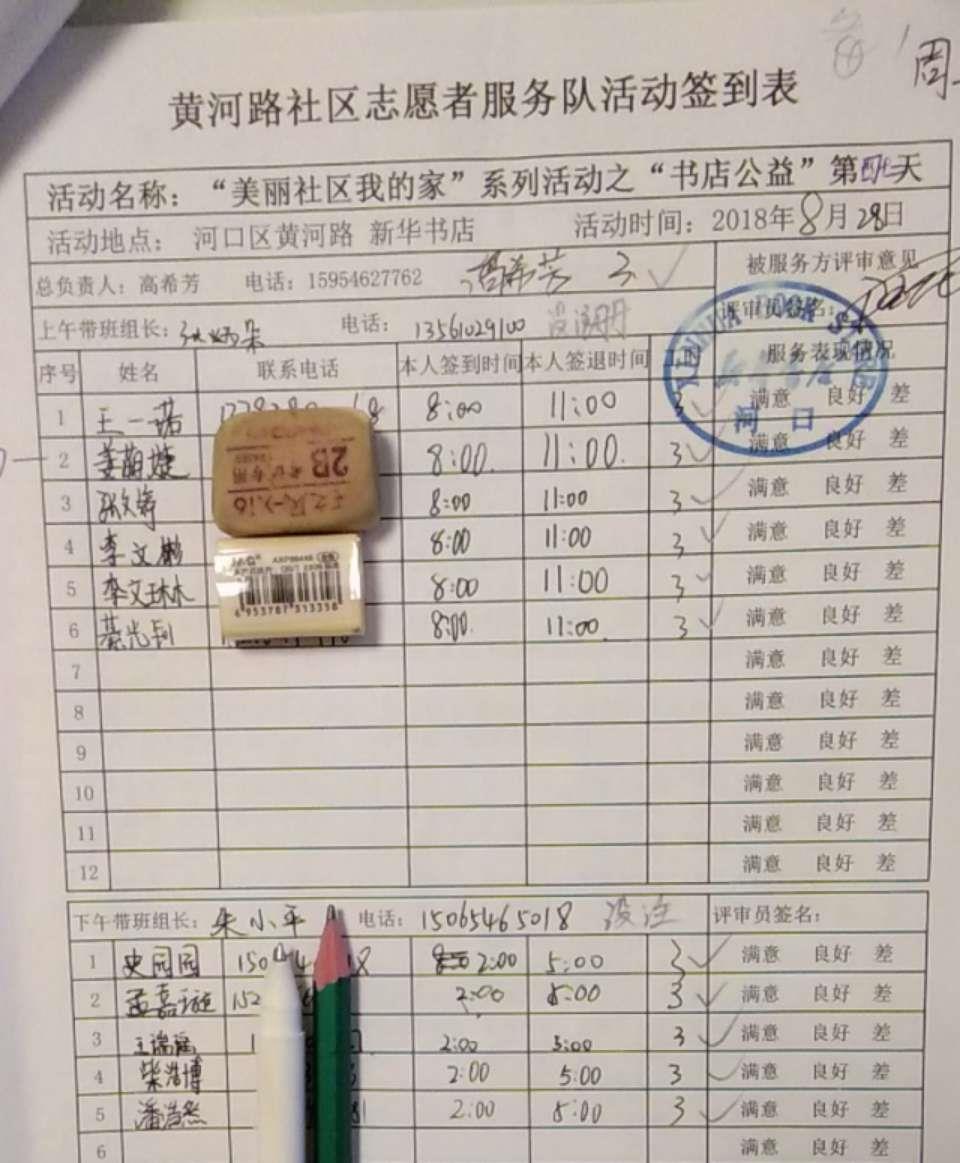 周
黄河路社区志愿者服务队活动签到表
活动名称：“美丽社区我的家”系列活动之“书店公益”第 天
活动地点： 河口区黄河路 新华书店 活动时间：2018年8月28日
总负责人：高希芳 电话：15954627762 高希芳 3
被服务方评审意见
评审员签名：
上午带班组长： 电话： 13561029100
序号 姓名 联系电话 本人签到时间 本人签退时间 时 服务表现情况
河口
1 王一诺 8:00 11:00 3 满意 良好 差
2 姜萌婕 8:00. 11:00. 3 满意 良好 差
3 8:00 11:00 3 满意 良好 差
4 李文彬 8:00 11:00 3 满意 良好 差
5 李文琳 8:00 11:00 3 满意 良好 差
6 8:00. 11:00. 3 满意 良好 差
7 满意 良好 差
8 满意 良好 差
9 满意 良好 差
10 满意 良好 差
11 满意 良好 差
12 满意 良好 差
2B
6953787313358
下午带班组长：朱小平 电话：15065465018 没注 评审员签名：
1 史园园 2:00 5:00 3 满意 良好 差
2 孟嘉璇 2:00 5:00 3 满意 良好 差
3 王瑞瑶 2:00 5:00 3 满意 良好 差
4 柴浩博 2:00 5:00 3 满意 良好 差
5 潘浩然 2:00 5:00 3 满意 良好 差
6 满意 良好 差